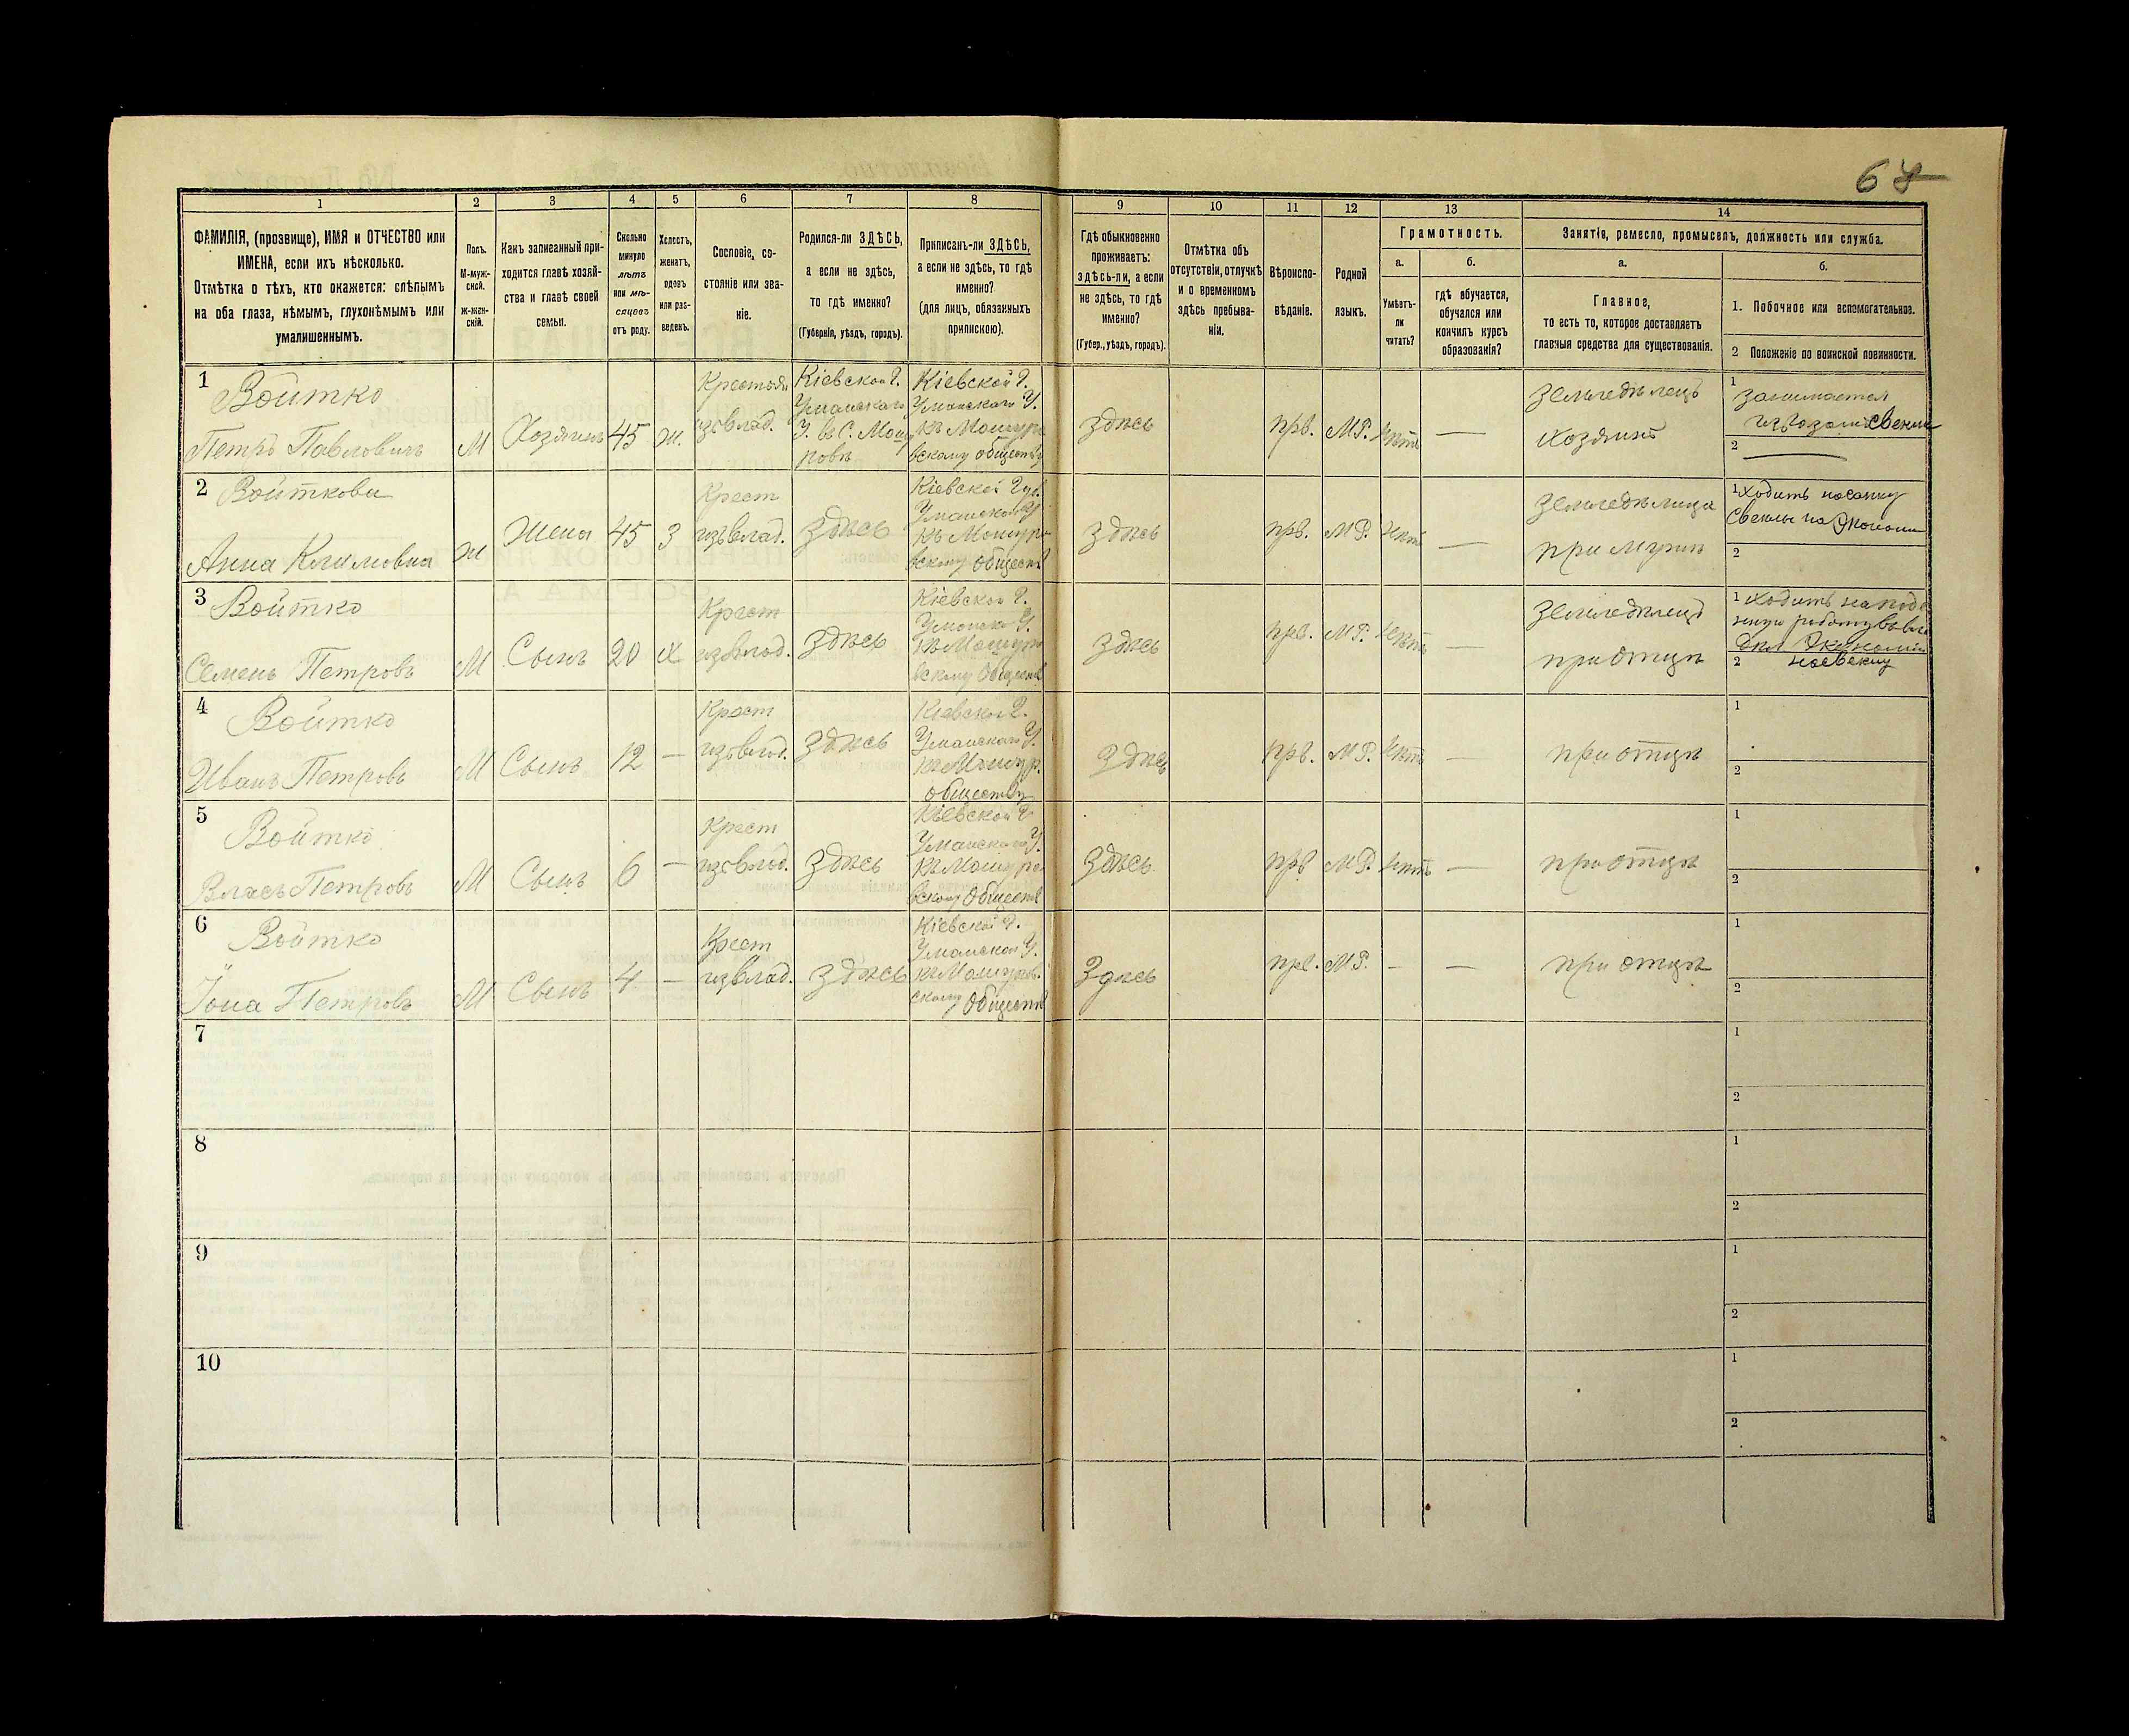 64
1 2 3 4 5 6 7 8 9 10 11 12 13 14
ФАМИЛІЯ, (прозвище), ИМЯ и ОТЧЕСТВО или
ИМЕНА, если ихъ нѣсколько.
Отмѣтка о тѣхъ, кто окажется: слѣпымъ
на оба глаза, нѣмымъ, глухонѣмымъ или
умалишеннымъ.
Полъ.
М-муж-
ской.
Ж-жен-
скій.
Какъ записанный при-
ходится главѣ хозяй-
ства и главѣ своей
семьи.
Сколько
минуло
лѣтъ
или мѣ-
сяцевъ
отъ роду.
Холостъ,
женатъ,
вдовъ
или раз-
веденъ.
Сословіе, со-
стояніе или зва-
ніе.
Родился-ли ЗДѢСЬ,
а если не здѣсь,
то гдѣ именно?
(Губернія, уѣздъ, городъ).
Приписанъ-ли ЗДѢСЬ,
а если не здѣсь, то гдѣ
именно?
(для лицъ, обязанныхъ
припискою).
Гдѣ обыкновенно
проживаетъ:
ЗДѢСЬ-ЛИ, а если
не здѣсь, то гдѣ
именно?
(Губер., уѣздъ, городъ).
Отмѣтка объ
отсутствіи, отлучкѣ
и о временномъ
здѣсь пребыва-
ніи.
Вѣроиспо-
вѣданіе.
Родной
языкъ.
Грамотность.
а.
Умѣетъ-
ли
читать?
б.
гдѣ обучается,
обучался или
кончилъ курсъ
образованія?
Занятія, ремесло, промыселъ, должность или служба.
а.
Главное,
то есть то, которое доставляетъ
главныя средства для существованія.
б.
1. Побочное или вспомогательное.
2 Положеніе по воинской повинности.
1
Войтко
Петръ Павловичъ
М
Хозяинъ
45
ж.
Крестьян
изъ влад.
Кіевской Г.
Уманскаго
У. въ С. Мошу
ровѣ
Кіевской Г.
Уманскаго У.
къ Мошуро
вскому обществу
здѣсь
прв.
МР.
нѣтъ
—
земледѣлецъ
хозяинъ
1
занимается
извозомъ
2 —
2
Войткова
Анна Климовна
ж
Жена
45
З
Крест
изъ влад.
Здѣсь
Кіевской Губ.
Уманскаго У.
къ Мошуро
вскому обществ
здѣсь
прв.
МР.
нѣтъ
—
земледѣлица
при мужѣ
1 ходитъ
Свеклы
2
3
Войтко
Семенъ Петровъ
М
Сынъ
20
х
Крест
изъ влад.
Здѣсь
Кіевской Г.
Уманск У.
къ Мошуро
вскому обществ
Здѣсь
прв.
МР.
нѣтъ
—
Земледѣлецъ
при отцѣ
1 ходитъ на
2
4
Войтко
Иванъ Петровъ
М
Сынъ
12
—
Крест
изъ влад.
Здѣсь
Кіевской Г.
Уманскаго У.
къ Мошур.
обществу
Здѣсь
прв.
МР.
нѣтъ
—
при отцѣ
1
2
5
Войтко
Власъ Петровъ
М
Сынъ
6
—
Крест
изъ влад.
Здѣсь
Кіевской Г
Уманскаго У.
къ Мошуро
вскому обществ
Здѣсь
прв
МР.
нѣтъ
—
при отцѣ
1
2
6
Войтко
Іона Петровъ
М
Сынъ
4
—
Крест
изъ влад.
Здѣсь
Кіевской Г.
Уманскаго У.
къ Мошуров
скому обществ
Здѣсь
прв.
МР.
—
—
при отцѣ
1
2
7
1
2
8
1
2
9
1
2
10
1
2